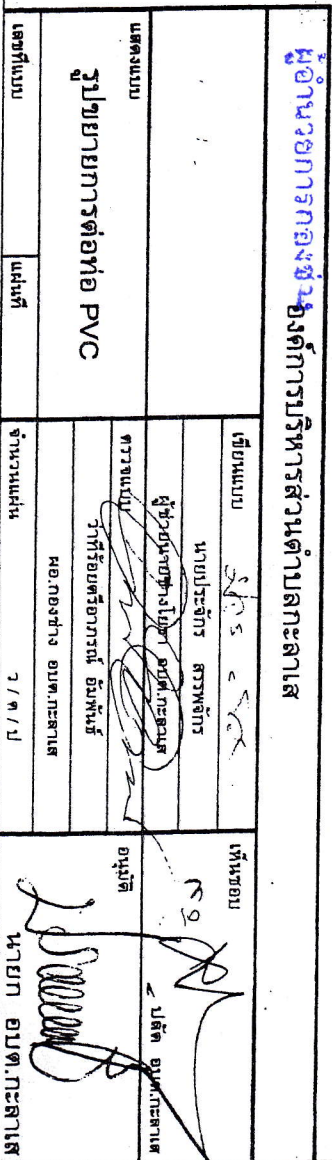 ผู้อำนวยการกองช่าง
องค์การบริหารส่วนตำบลกะลาเส
แสดงแบบ
รูปขยายการต่อท่อ PVC
เลขที่แบบ
แผ่นที่
เขียนแบบ
นายประจักร สรรพจักร
ผู้ช่วยนายช่างโยธา อบต.กะลาเส
ตรวจแบบ
ว่าที่ร้อยตรีอาภรณ์ อิ่มพันธ์
ผอ.กองช่าง อบต.กะลาเส
จำนวนแผ่น
ว / ด / ป
เห็นชอบ
ปลัด อบต.กะลาเส
อนุมัติ
นายก อบต.กะลาเส